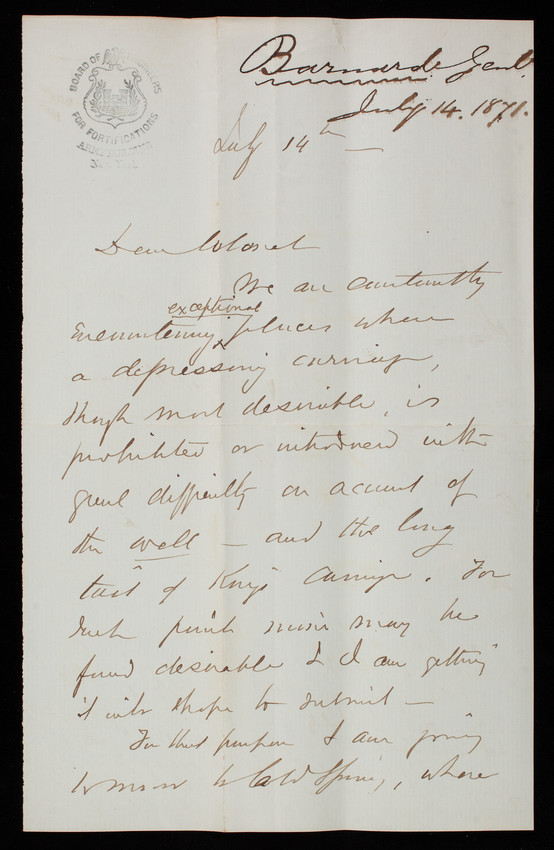 BOARD OF ENGINEERS
FOR FORTIFICATIONS
Barnard. Genl.
July 14. 1871.
July 14th —
Dear Colonel
We are constantly
exceptional
encountering places where
a depressing carriage,
though most desirable, is
prohibited or introduced with
great difficulty on account of
the well — and the long
tail of King's carriage. For
such points mine may be
found desirable & I am getting
it into shape to submit —
For that purpose I am going
to Cold Spring, where